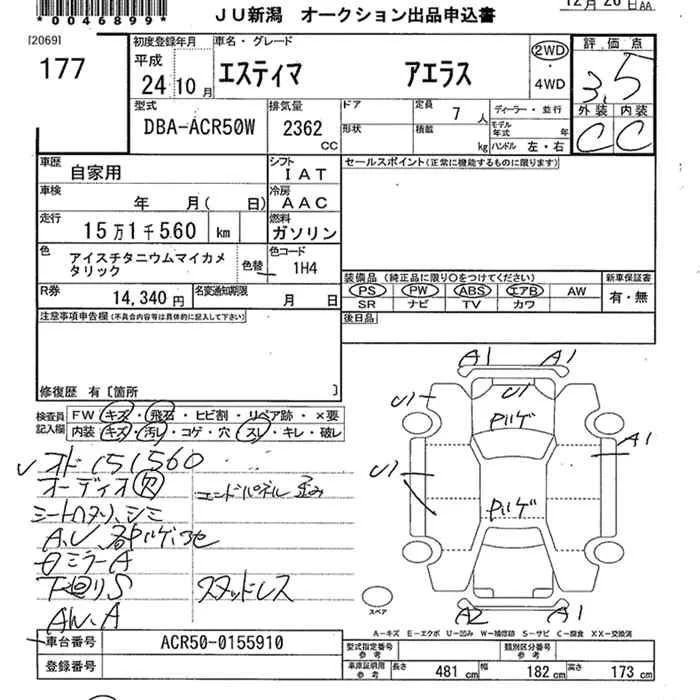 *0046899*
JU新潟 オークション出品申込書
12月20日AA
[2069]
177
初度登録年月
平成
24 10月
車名・グレード
エスティマ アエラス
2WD
・
4WD
評価点
3.5
外装 内装
C C
型式
DBA-ACR50W
排気量
2362
CC
ドア
形状
定員 7 人
積載 kg
ディーラー・並行
モデル年式 年
ハンドル 左・右
車歴
自家用
シフト
IAT
セールスポイント(正常に機能するものに限ります)
車検
年 月( 日)
冷房
AAC
走行
15万1千560 km
燃料
ガソリン
色
アイスチタニウムマイカメ
タリック
色替
色コード
1H4
R券
14,340円
名変通知期限
月 日
装備品(純正品に限り○をつけてください)
PS PW ABS エアB AW
SR ナビ TV カワ
新車保証書
有・無
後日品
注意事項申告欄(不具合内容等は具体的に記入して下さい)
修復歴 有〔箇所 〕
検査員
記入欄
FW キズ・飛石・ヒビ割・リペア跡・×要
内装 キズ・汚レ・コゲ・穴・スレ・キレ・破レ
オド151560
オーディオ欠
エンドパネル歪み
シート
ミラーA
下廻りS
スタッドレス
AW.A
A1 A1
U1 U1
A1
U1
A2 A1
スペア
A-キズ E-エクボ U-凹み W-補修跡 S-サビ C-腐食 XX-交換済
車台番号 ACR50-0155910
登録番号
型式指定番号
参考
類別区分番号
参考
車庫証明用
参考
長さ 481 cm 幅 182 cm 高さ 173 cm